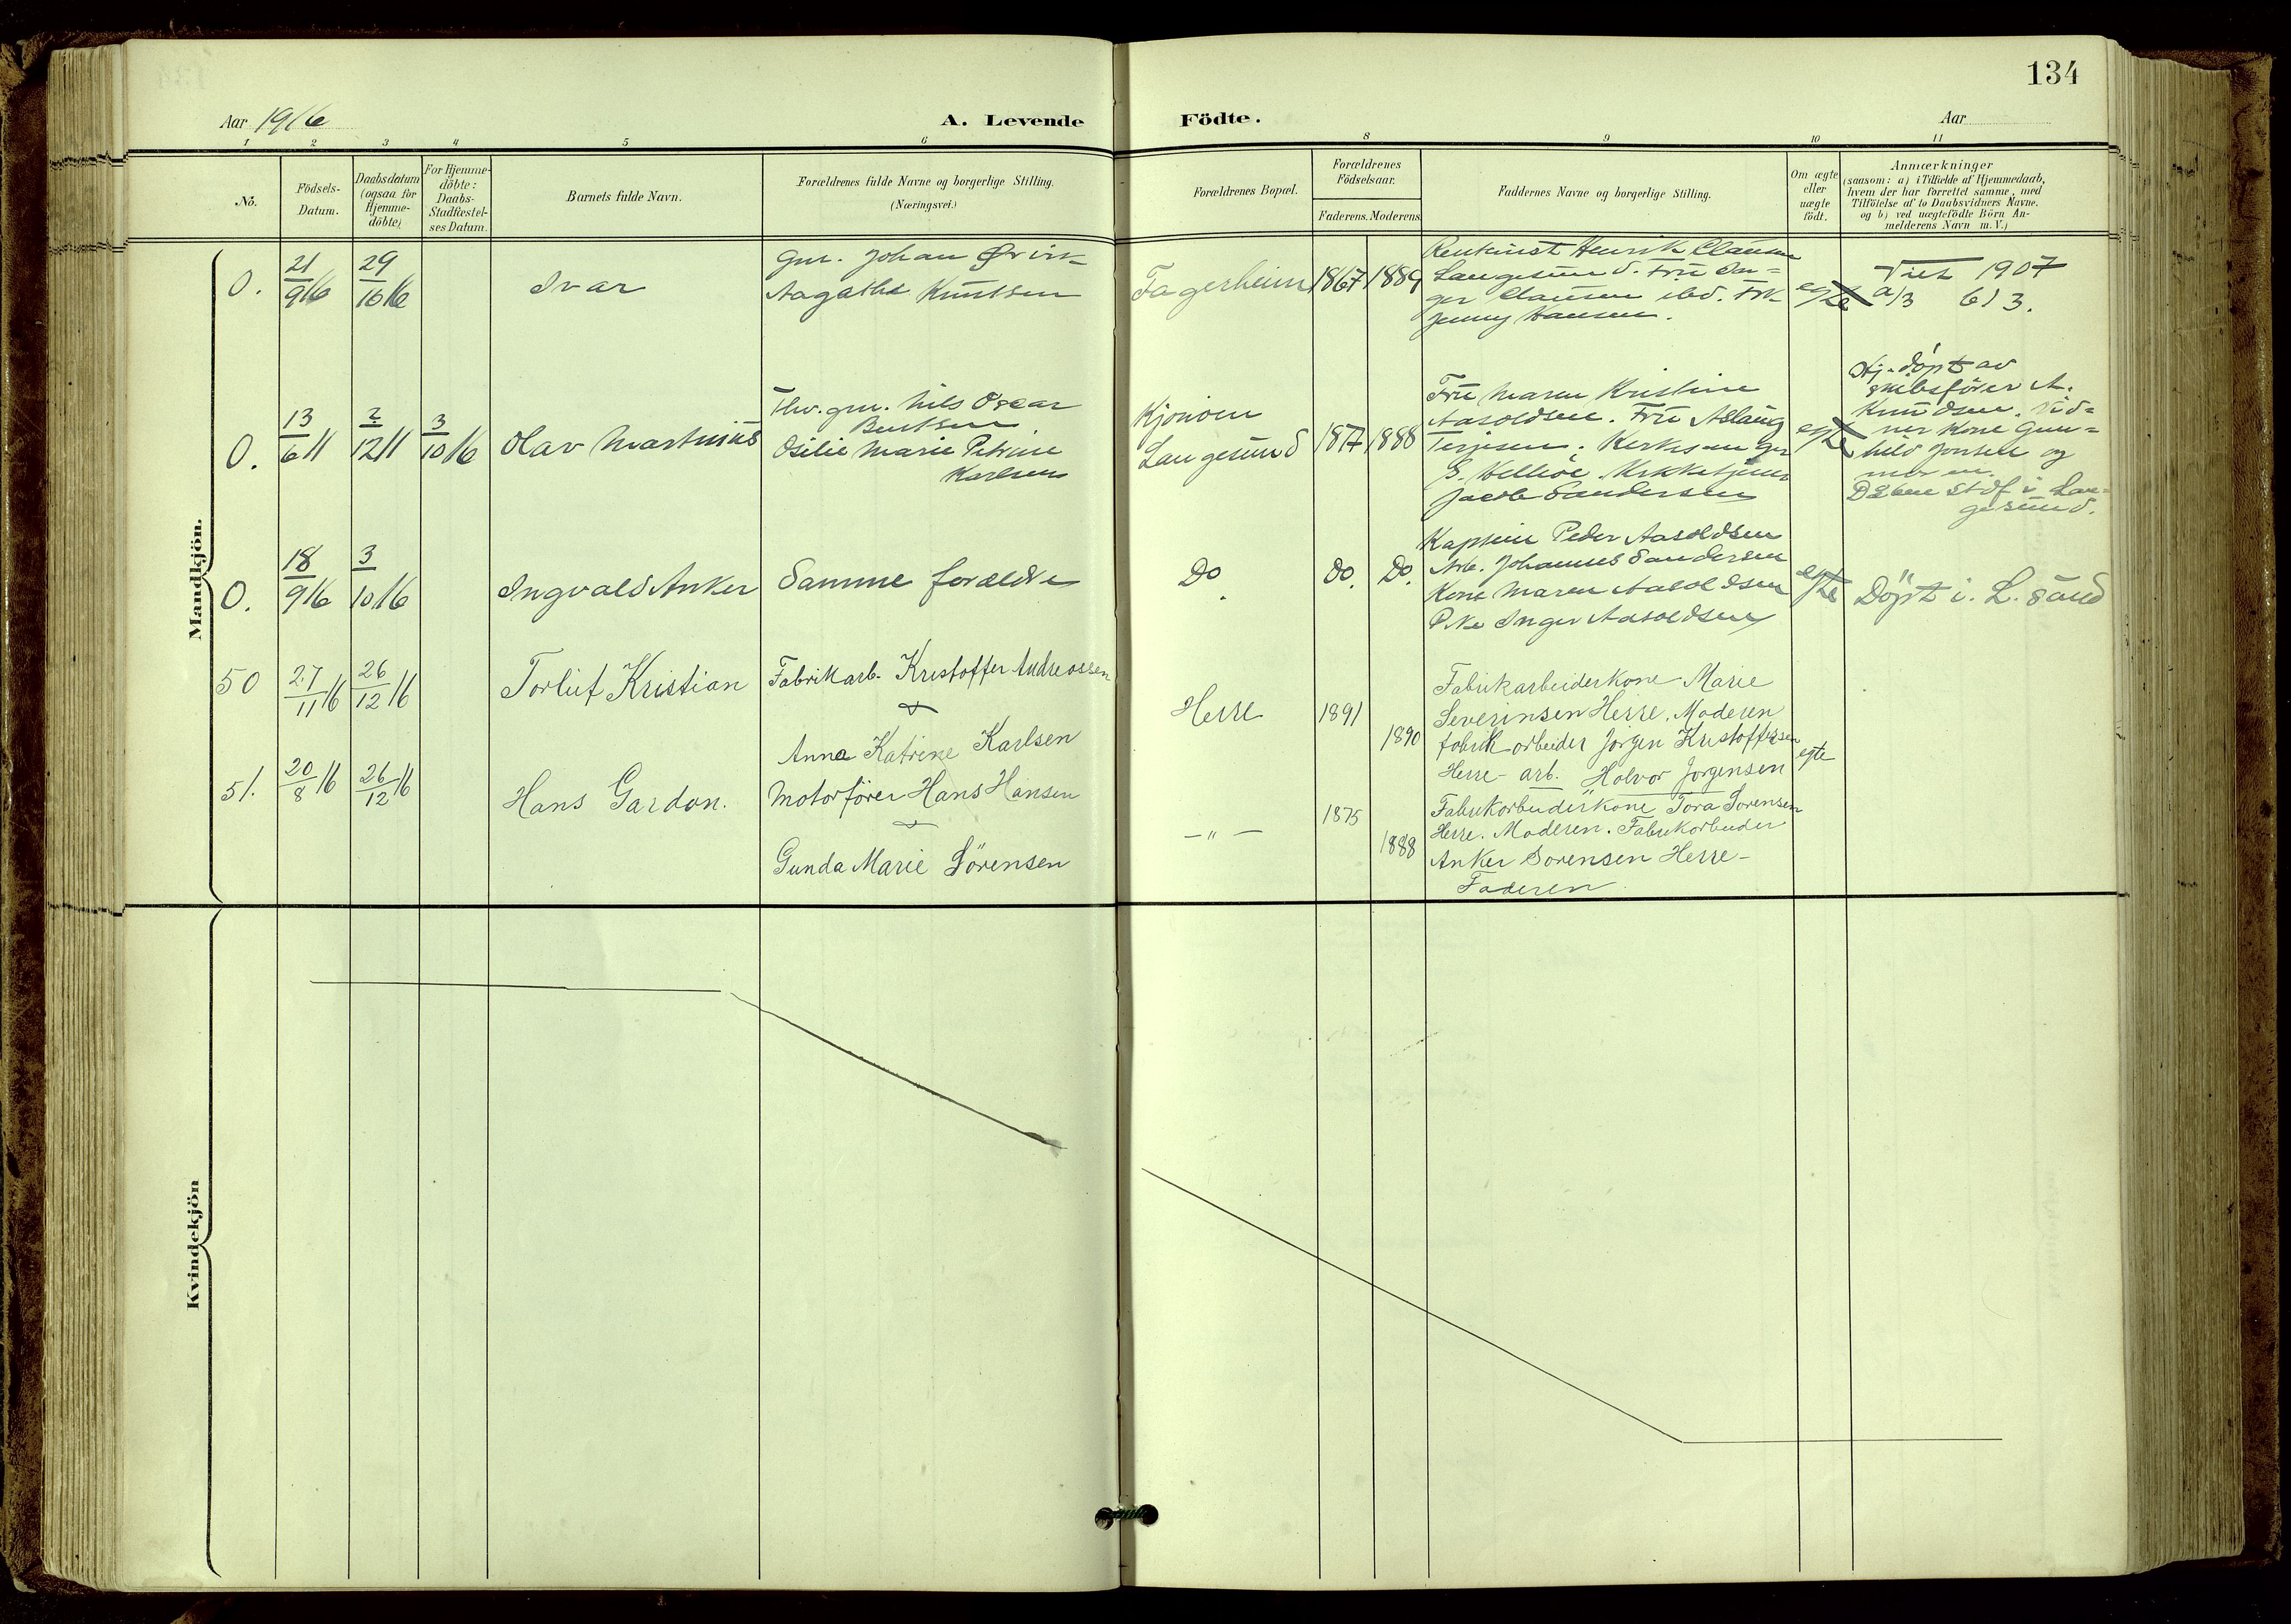 134
Aar 1916
A. Levende
Födte.
Aar
1 2 3 4 5 6 8 9 10 11
No.
Födsels-
Datum.
Daabsdatum
(ogsaa for
Hjemme-
döbte)
For Hjemme-
döbte:
Daabs-
Stadfæstel-
ses Datum.
Barnets fulde Navn.
Forældrenes fulde Navne og borgerlige Stilling.
(Næringsvei.)
Forældrenes Bopæl.
Forældrenes
Födselsaar.
Faderens. Moderens.
Faddernes Navne og borgerlige Stilling.
Om ægte
eller
uægte
födt.
Anmærkninger
(saasom: a) i Tilfælde af Hjemmedaab,
hvem der har forrettet samme, med
Tilföielse af to Daabsvidners Navne.
og b) ved uægtefödte Börn An-
melderens Navn m. V.)
Mandkjön.
0.
21/9 16
29/10 16
Ivar
Gm. Johan Ørvik
Aagathe Knutsen
Fagerheim
1867
1889
Henrik Clausen
Langesund. Fru In-
ger Clausen ibd. Frk.
Jenny Hansen.
egte
Viet 1907
a/3 b) 3.
0.
13/6 11
?/12 11
3/10 16
Olav Martinius
Thv. gm. Nils Oscar
Bentsen
Osilie Marie Petrine
Karlsen
Kjönöen
Langesund
1877
1888
Fru Maren Kristine
Aasoldsen. Fru Aslaug
Terjesen. Kirkesanger
Jacob Sandersen
egte
Hj. döpt av
skibsförer A.
Knudsen. Vid-
ner Kone Gun-
hild Jonsen og
moren.
Daaben stdf i Lan-
gesund.
0.
18/9 16
3/10 16
Ingvald Anker
Samme forældre
Do.
Do.
Do.
Kaptein Peder Aasoldsen
Arb. Johannes Sandersen
Kone Maren Aasoldsen
Pike Inger Aasoldsen
egte
Döpt i L. sund
50
27/11 16
26/12 16
Torlüf Kristian
Fabrikarb. Kristoffer Andreassen
&
Anna Katrine Karlsen
Herre
1891
1890
Fabrikarbeiderkone Marie
Severinsen Herre. Moderen
fabrikarbeider Jörgen Kristoffersen
Herre - arb. Halvor Jörgensen
egte
51.
20/8 16
26/12 16
Hans Gardon.
Motorförer Hans Hansen
&
Gunda Marie Sörensen
— " —
1875
1888
Fabrikarbeiderkone Tora Sörensen
Herre. Moderen. Fabrikarbeider
Anker Sörensen Herre -
Faderen
Kvindekjön